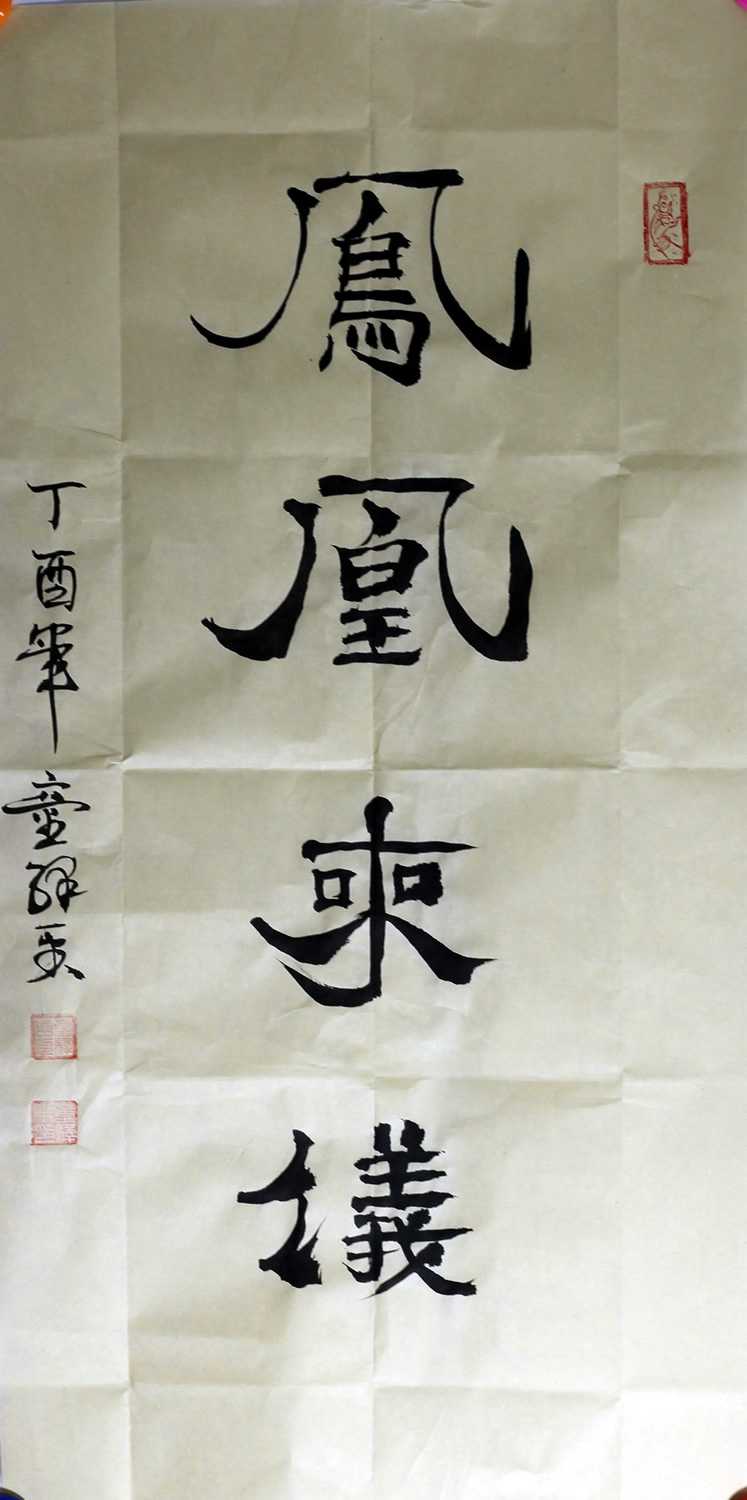 鳳凰來儀
丁酉年